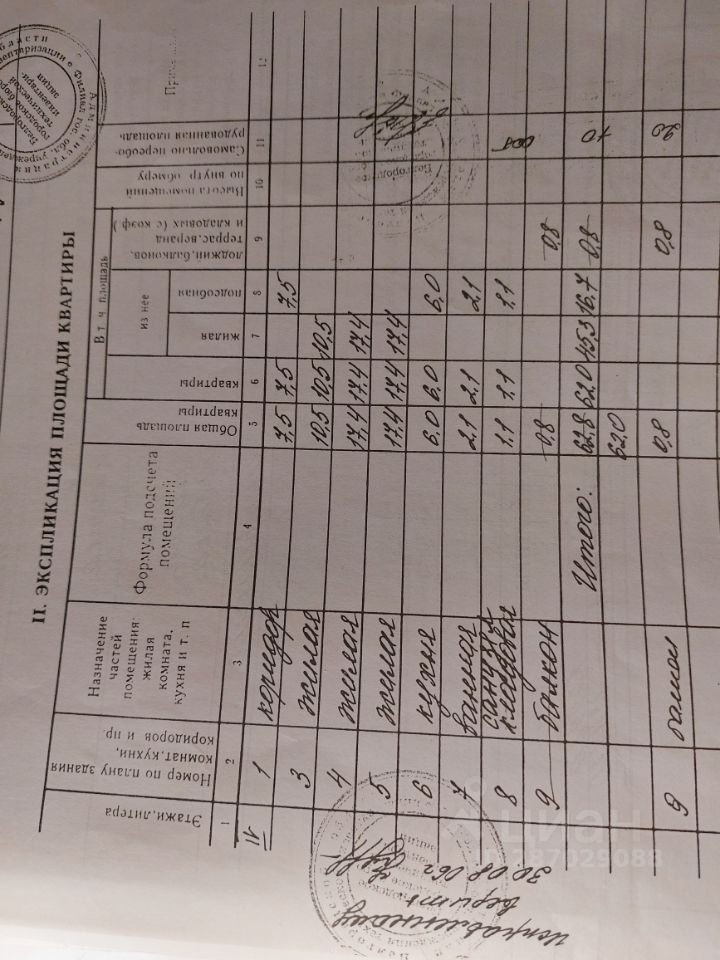 II. ЭКСПЛИКАЦИЯ ПЛОЩАДИ КВАРТИРЫ
Этажи, литера
Номер по плану здания
комнат, кухни,
коридоров и пр.
Назначение
частей
помещения:
жилая
комната,
кухня и т. п
Формула подсчета
помещений
Общая площадь
квартиры
В т. ч. площадь
квартиры
из нее
жилая
подсобная
лоджий, балконов,
террас, веранд
и кладовых (с коэф)
Высота помещений
по внутр обмеру
Самовольно переобо-
рудованная площадь
1 2 3 4 5 6 7 8 9 10 11 12
11 1 коридор 7,5 7,5 7,5
3 жилая 10,5 10,5 10,5
4 жилая 17,4 17,4 17,4
5 жилая 17,4 17,4 17,4
6 кухня 6,0 6,0 6,0
7 ванная 2,1 2,1 2,1
8 санузел 1,1 1,1 1,1
9 балкон 0,8 0,8
Итого: 62,8 62,0 45,3 16,7 0,8
62,0
9 балкон 0,8 0,8
исправленному
верить
30.08.06г
циан